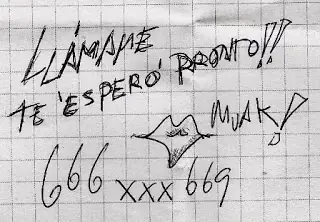 LLÁMAME
TE 'ESPERO' PRONTO!!
MUAK!
666 XXX 669